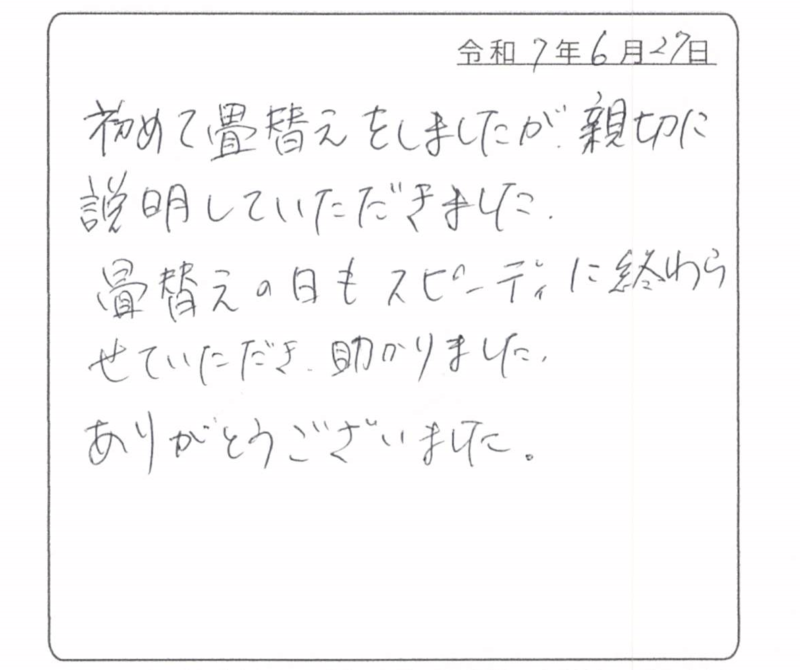 令和7年6月27日
初めて畳替えをしましたが、親切に
説明していただきました。
畳替えの日もスピーディに終わら
せていただき、助かりました。
ありがとうございました。